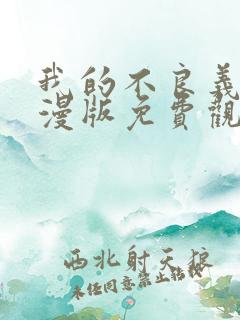 我的不良義
漫版免費觀
西北射天狼
未经同意禁止转载